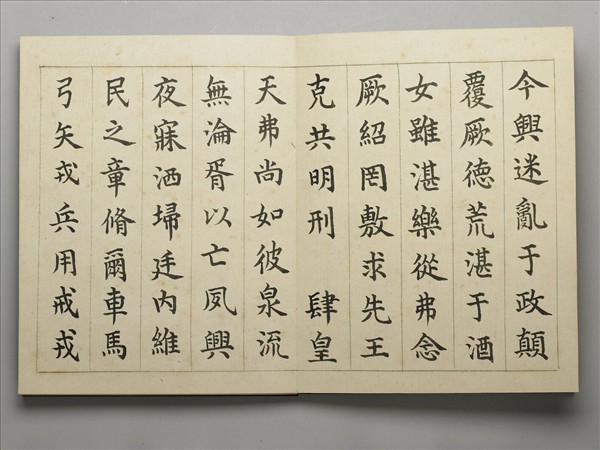 今興迷亂于政顛
覆厥德荒湛于酒
女雖湛樂從弗念
厥紹罔敷求先王
克共明刑　肆皇
天弗尚如彼泉流
無淪胥以亡夙興
夜寐洒埽廷內維
民之章脩爾車馬
弓矢戎兵用戒戎